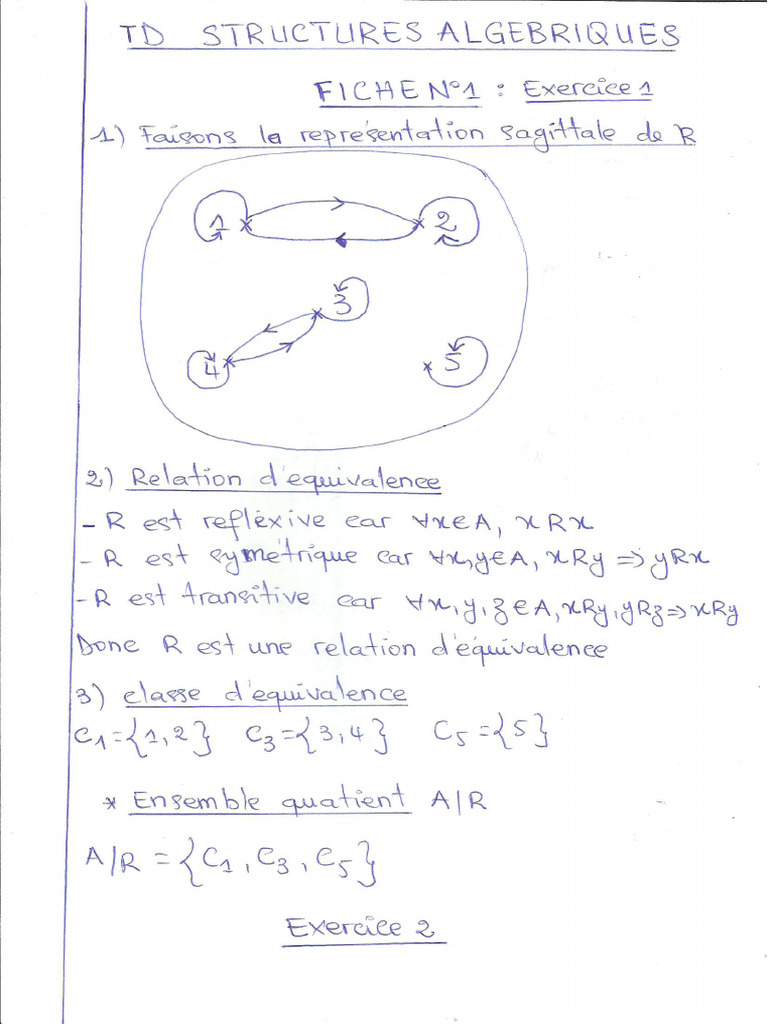 TD STRUCTURES ALGEBRIQUES
FICHE N°1 : Exercice 1
1) Faisons la représentation sagittale de R
1 2
3
4 5
2) Relation d'équivalence
- R est refléxive car ∀x∈A, xRx
- R est symétrique car ∀x,y∈A, xRy => yRx
- R est transitive car ∀x,y,z∈A, xRy, yRz => xRy
Donc R est une relation d'équivalence
3) classe d'équivalence
C₁={1,2} C₃={3,4} C₅={5}
* Ensemble quatient A/R
A/R = {C₁, C₃, C₅}
Exercice 2